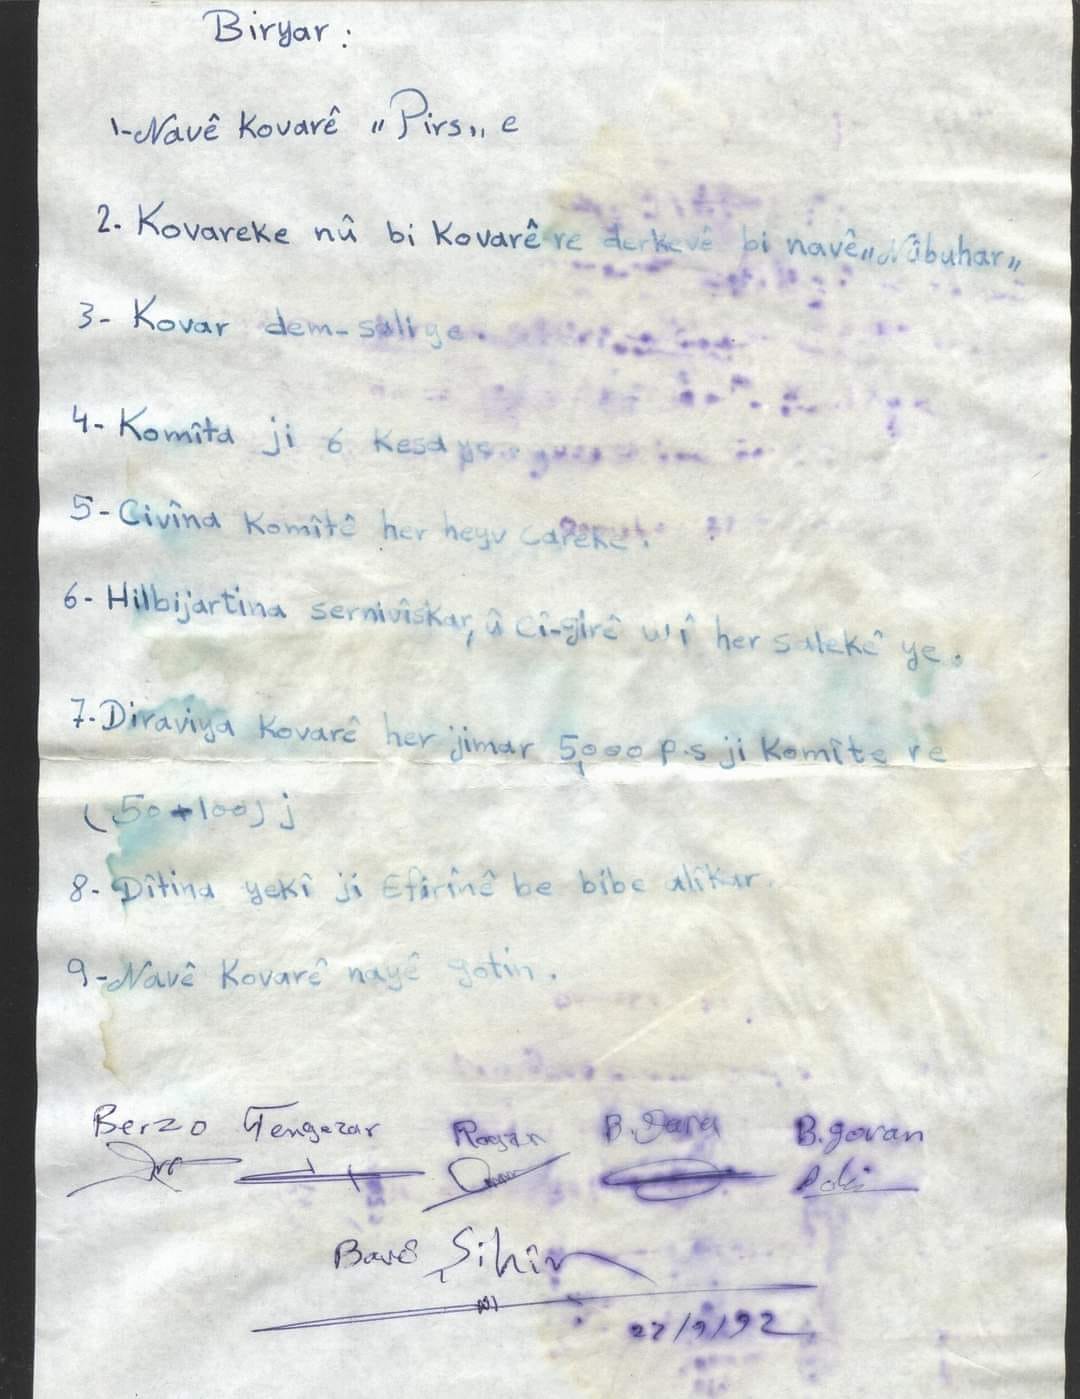 Biryar:
1-Navê Kovarê „Pirs„ e
2. Kovareke nû bi Kovarê re derkevê bi navê „Nûbuhar„
3- Kovar dem-salîye.
4- Komîta ji 6 Kesa ye.
5- Civîna Komîtê her heyv careke.
6- Hilbijartina sernivîskar, û Cî-girê wî her salekê ye.
7. Diraviya Kovarê her jimar 5,000 p.s ji Komîte re
(50+100) j
8- Dîtina yekî ji Efirînê be bibe alîkar.
9- Navê Kovarê nayê gotin.
Berzo Tengezar Rojan B. Sara B. govan
Bavê Şihîn
27/9/92